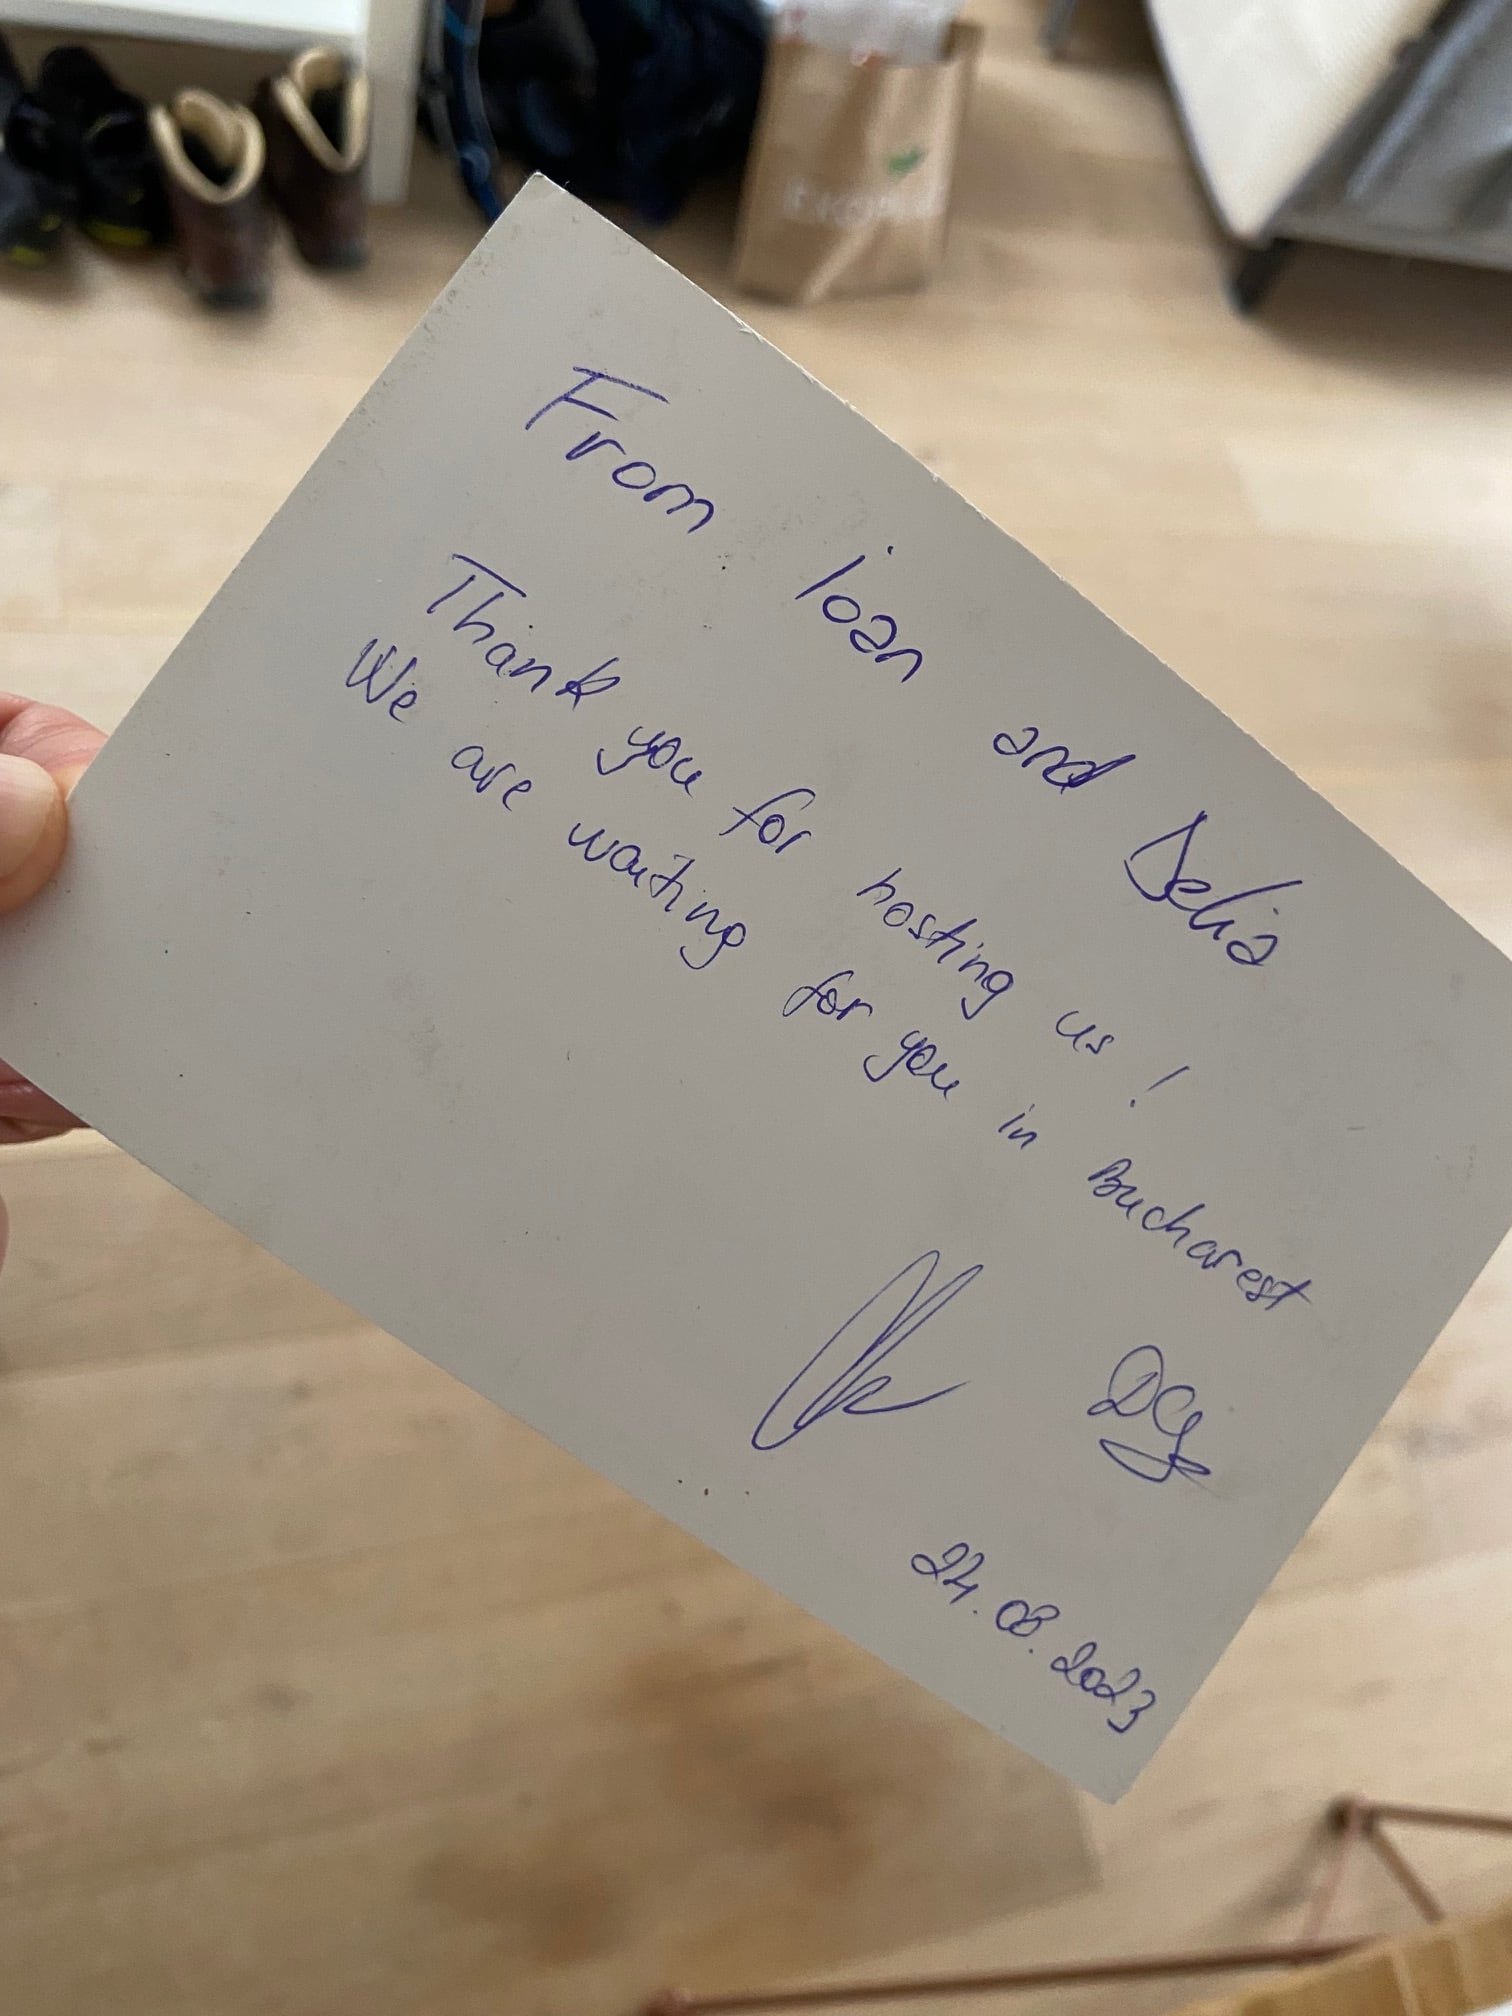 From ioan and Delia
Thank you for hosting us!
We are waiting for you in Bucharest
DG
24.08.2023